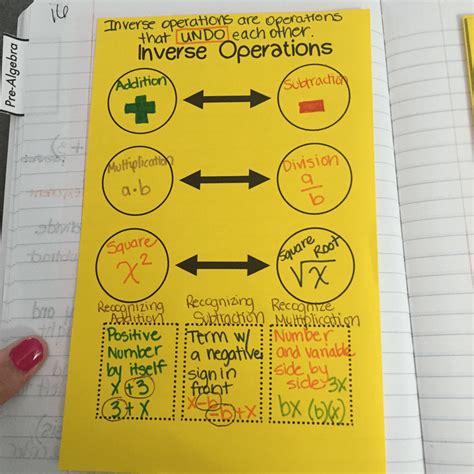 16
Pre-Algebra
Inverse operations are operations
that UNDO each other.
Inverse Operations
Addition
+
Subtraction
-
Multiplication
a·b
Division
a/b
Square
x²
Square Root
√x
Recognizing
Addition
Positive
Number
by itself
x+3
3+x
Recognizing
Subtraction
Term w/
a negative
sign in
front
x-b
-b+x
Recognize
Multiplication
Number
and variable
side by
side 3x
bx (b)(x)